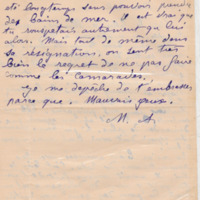 été longtemps sans pouvoir prendre
des bains de mer. Il est vrai que
tu rouspétais autrement que lui
alors. Mais tout de même, dans
sa résignation, on sent très
bien le regret de ne pas faire
comme les camarades.
Je me dépêche de t'embrasser
parce que. Mauvais yeux.
M. A